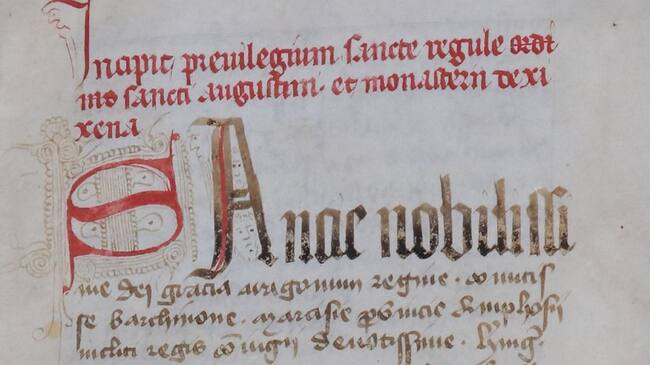 Incipit preuilegium sancte regule ordi
nis sancti augustini. et monasterii de xi
xena
SAncie nobilissi
me dei gracia aragonum regine. comitis
se barchinone. Marcisie prouincie Amphosii
incliti regis coniugii deuotissime.